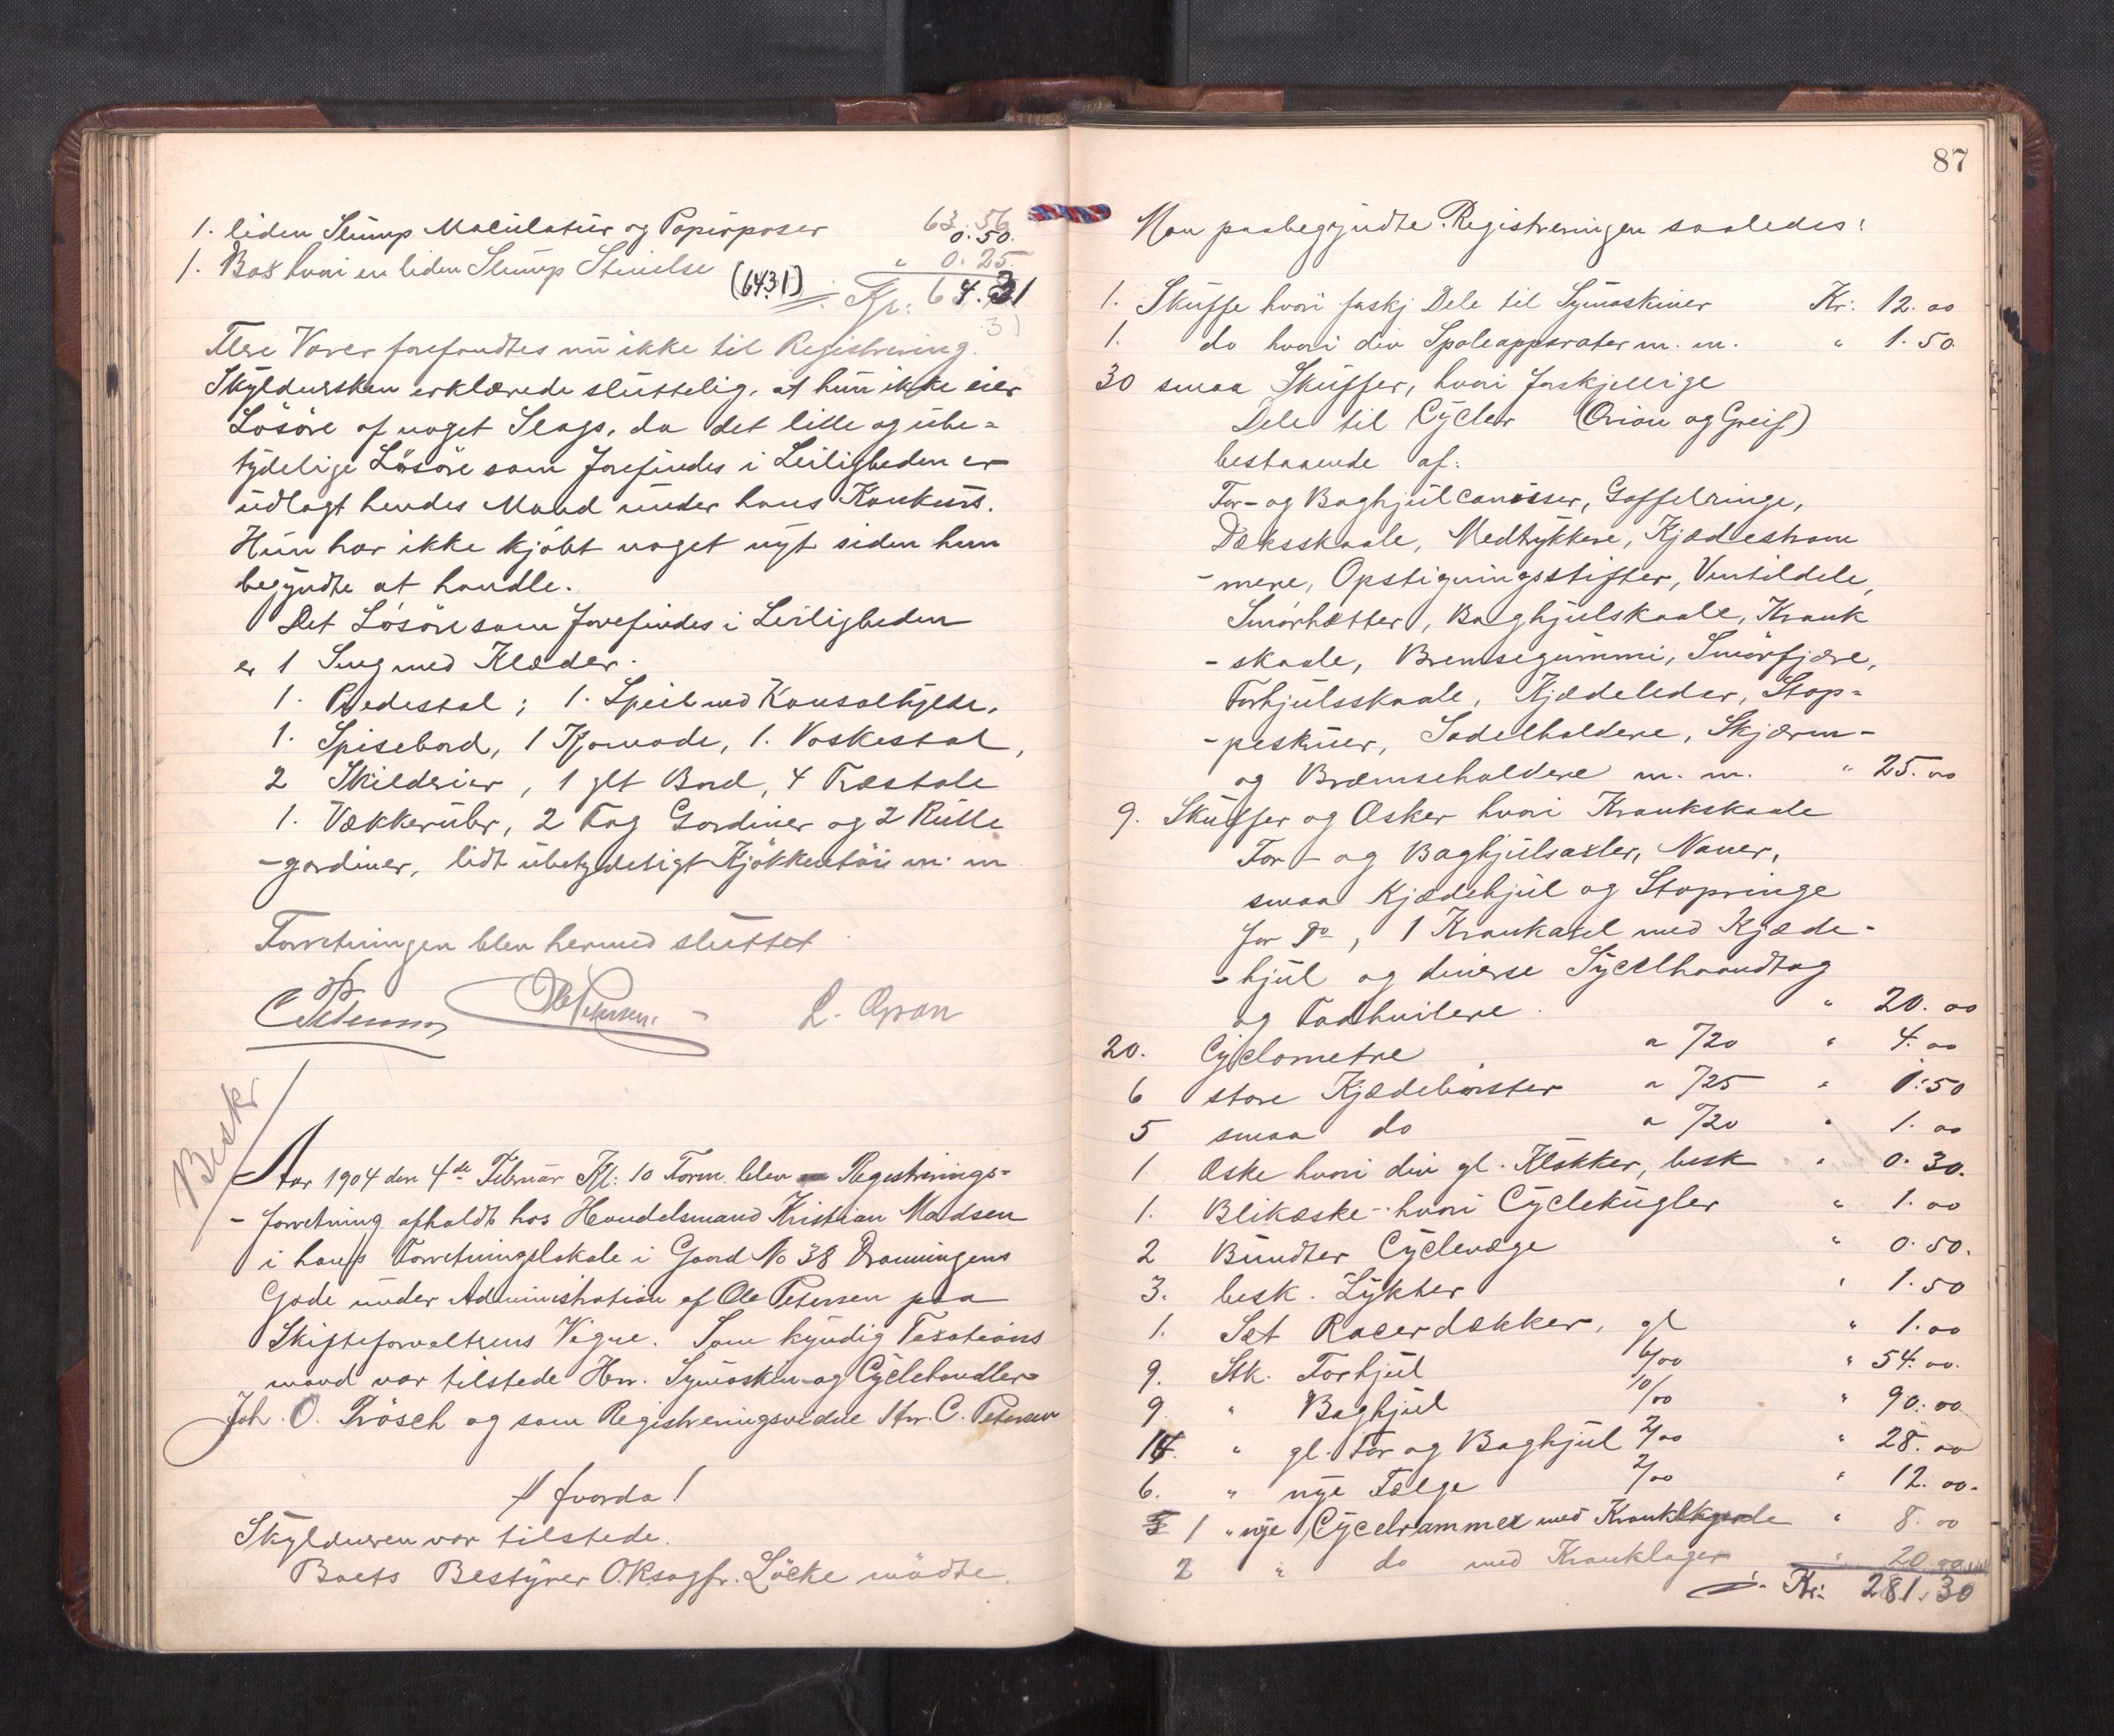 63.56
1. liden Slump Maculatur og Papirposer 0.50.
1. Box hvori en liden Slump Stivelse " 0.25.
(64.31) Kr: 64.31
Flere Varer forefandtes nu ikke til Registrering.
Skyldnersken erklærede sluttelig, at hun ikke eier
Løsøre af noget Slags, da det lille og ube=
tydelige Løsøre som forefindes i Leiligheden er
udlagt hendes Mand under hans Konkurs.
Hun har ikke kjøbt noget nyt siden hun
begyndte at handle.
Det Løsøre som forefindes i Leiligheden
er 1 Seng med Klæder.
1. Pedestal; 1. Speil med Konsolhylde,
1. Spisebord, 1 Komode, 1. Vaskestol,
2 Skilderier, 1 glt Bord, 4 Træstole
1. Vækkeruhr, 2 Fag Gardiner og 2 Rulle
-gardiner, lidt ubetydeligt Kjøkkentøi m. m
Forretningen blev hermed sluttet
C Petersen Ole Petersen. L. Gran
Beskr
Aar 1904 den 4de Februar Kl: 10 Form. blev Registrerings=
- forretning afholdt hos Handelsmand Kristian Madsen
i hans Forretningslokale i Gaard No 38 Dronningens
Gade under Administration af Ole Petersen paa
Skifteforvalterens Vegne. Som kyndig Taxations
mand var tilstede Hr. Symaskin- og Cyclehandler
Joh. O. Trösch og som Registreringsvidne Hr. C. Petersen
Hvorda!
Skyldneren var tilstede.
Boets Bestyrer O.Rsagfr. Löcke mødte.
87
Man paabegyndte Registreringen saaledes:
1. Skuffe hvori forskj Dele til Symaskiner Kr: 12.00
1. do hvori div Spoleapparater m. m. " 1.50
30 smaa Skuffer, hvori forskjellige
Dele til Cycler (Orion og Greif)
bestaaende af:
For- og Baghjulconusser, Gaffelringe,
Dæksskaale, Medtrykkere, Kjædestram
-mere, Opstigningsstifter, Ventildele,
Smørhætter, Baghjulskaale, Krank
-skaale, Bremsegummi, Smørfjære,
Forhjulsskaale, Kjædeleder, Stop=
-peskruer, Sadelholdere, Skjærm-
og Bræmseholdere m. m. " 25.00
9. Skuffer og Æsker hvori Krankskaale
For- og Baghjulsaxler, Naver,
smaa Kjædehjul og Stopringe
for Do, 1 Krankaxel med Kjæde-
-hjul og diverse Sycelhaandtag
og Fodhvilere. " 20.00
20. Cyclometre a /20 " 4.00
6 store Kjædebørster a /25 " 1.50
5 smaa do a /20 " 1.00
1 Æske hvori div gl. Klokker, besk " 0.30.
1. Blikæske hvori Cyclekugler " 1.00
2 Bundter Cyclevæge " 0.50.
3. besk. Lykter " 1.50
1. Sæt Racerdækker, gl " 1.00
9. Stk. Forhjul 6/00 " 54.00.
9. " Baghjul 10/00 " 90.00
14 " gl. For og Baghjul 2/00 " 28.00
6. " nye Fælge 2/00 " 12.00.
1 " nye Cycelramme med Krank " 8.00
2 " do med Kranklager " 20.00
Kr: 281.30